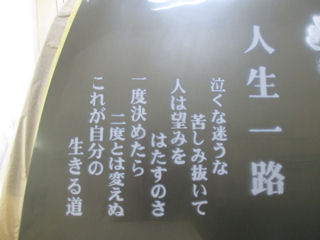 人生一路
泣くな迷うな
苦しみ抜いて
人は望みを
はたすのさ
一度決めたら
二度とは変えぬ
これが自分の
生きる道